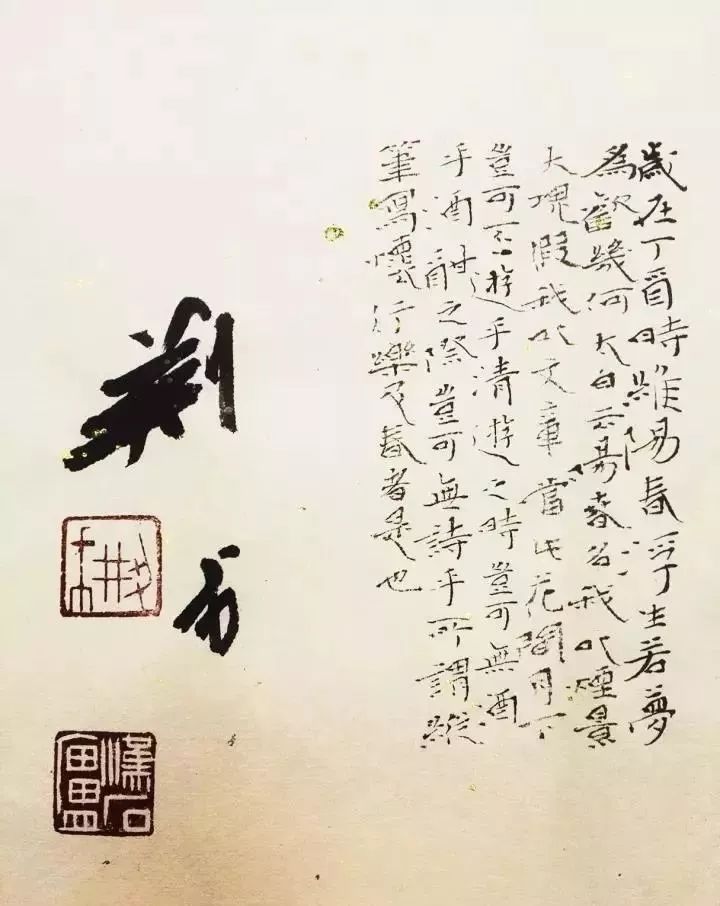 歲在丁酉時維陽春浮生若夢
為歡幾何太白云陽春召我以煙景
大塊假我以文章當此花間月下
豈可不遊乎清遊之時豈可無酒
乎酒酣之際豈可無詩乎所謂縱
筆寫懷行樂及春者是也
荆
漢石